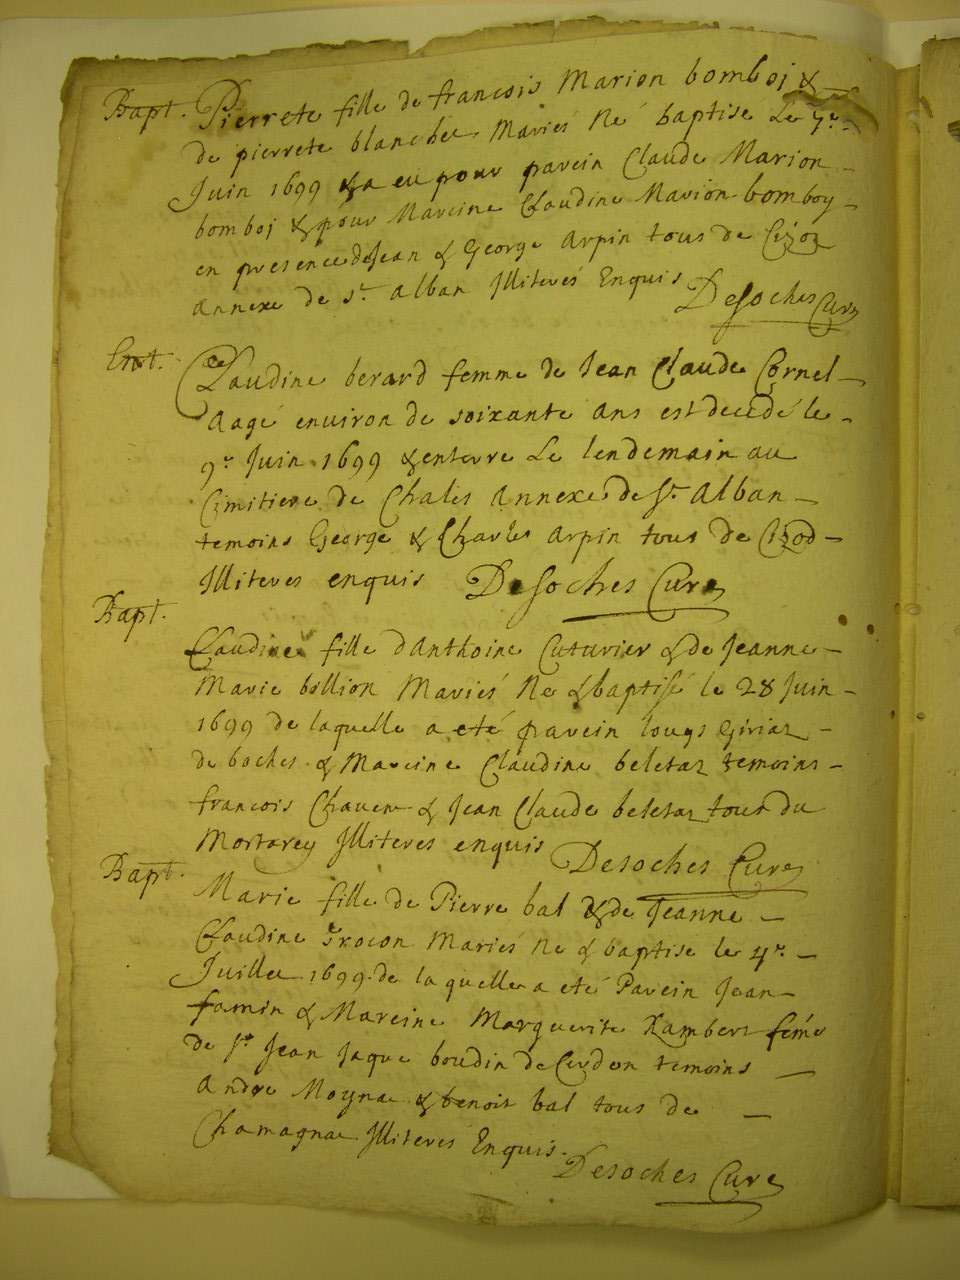 Bapt. Pierrete fille de francois Marion bomboj &
de pierrete blanchet Mariés Né baptisé Le 7e
Juin 1699 & a eu pour parein Claude Marion
bomboj & pour Mareine Claudine Marion bomboy
en presence de Jean & George Arpin tous de Cizod
annexe de St. Alban Illiterés Enquis Desoches Cure
Ent. Claudine berard femme de Jean Claude Cornel
Aagé environ de soixante ans est decedé le
9e Juin 1699 & enterre Le lendemain au
Cimitiere de Chalés Annexe de St. Alban
temoins George & Charles Arpin tous de Cizod
Illiteres enquis Desoches Cure
Bapt.
Claudine fille d'Anthoine Cuturier & de Jeanne
Marie bollion Mariés Né & baptisé le 28 Juin
1699 de laquelle a eté parein louys Giriat
de boches & Mareine Claudine beletaz temoins
francois & Jean Claude beletaz tous du
Mortarey Illiteres enquis Desoches Cure
Bapt. Marie fille de Pierre bal & de Jeanne
Claudine Trocon Mariés Né & baptise le 4e
Juillet 1699 de la quelle a eté Parein Jean
famin & Mareine Marguerite Lambert feme
de Sr. Jean Jaque boudin de Cerdon temoins
Andre Moyna & benoit bal tous de
Chamagnat Illiterés Enquis.
Desoches Cure